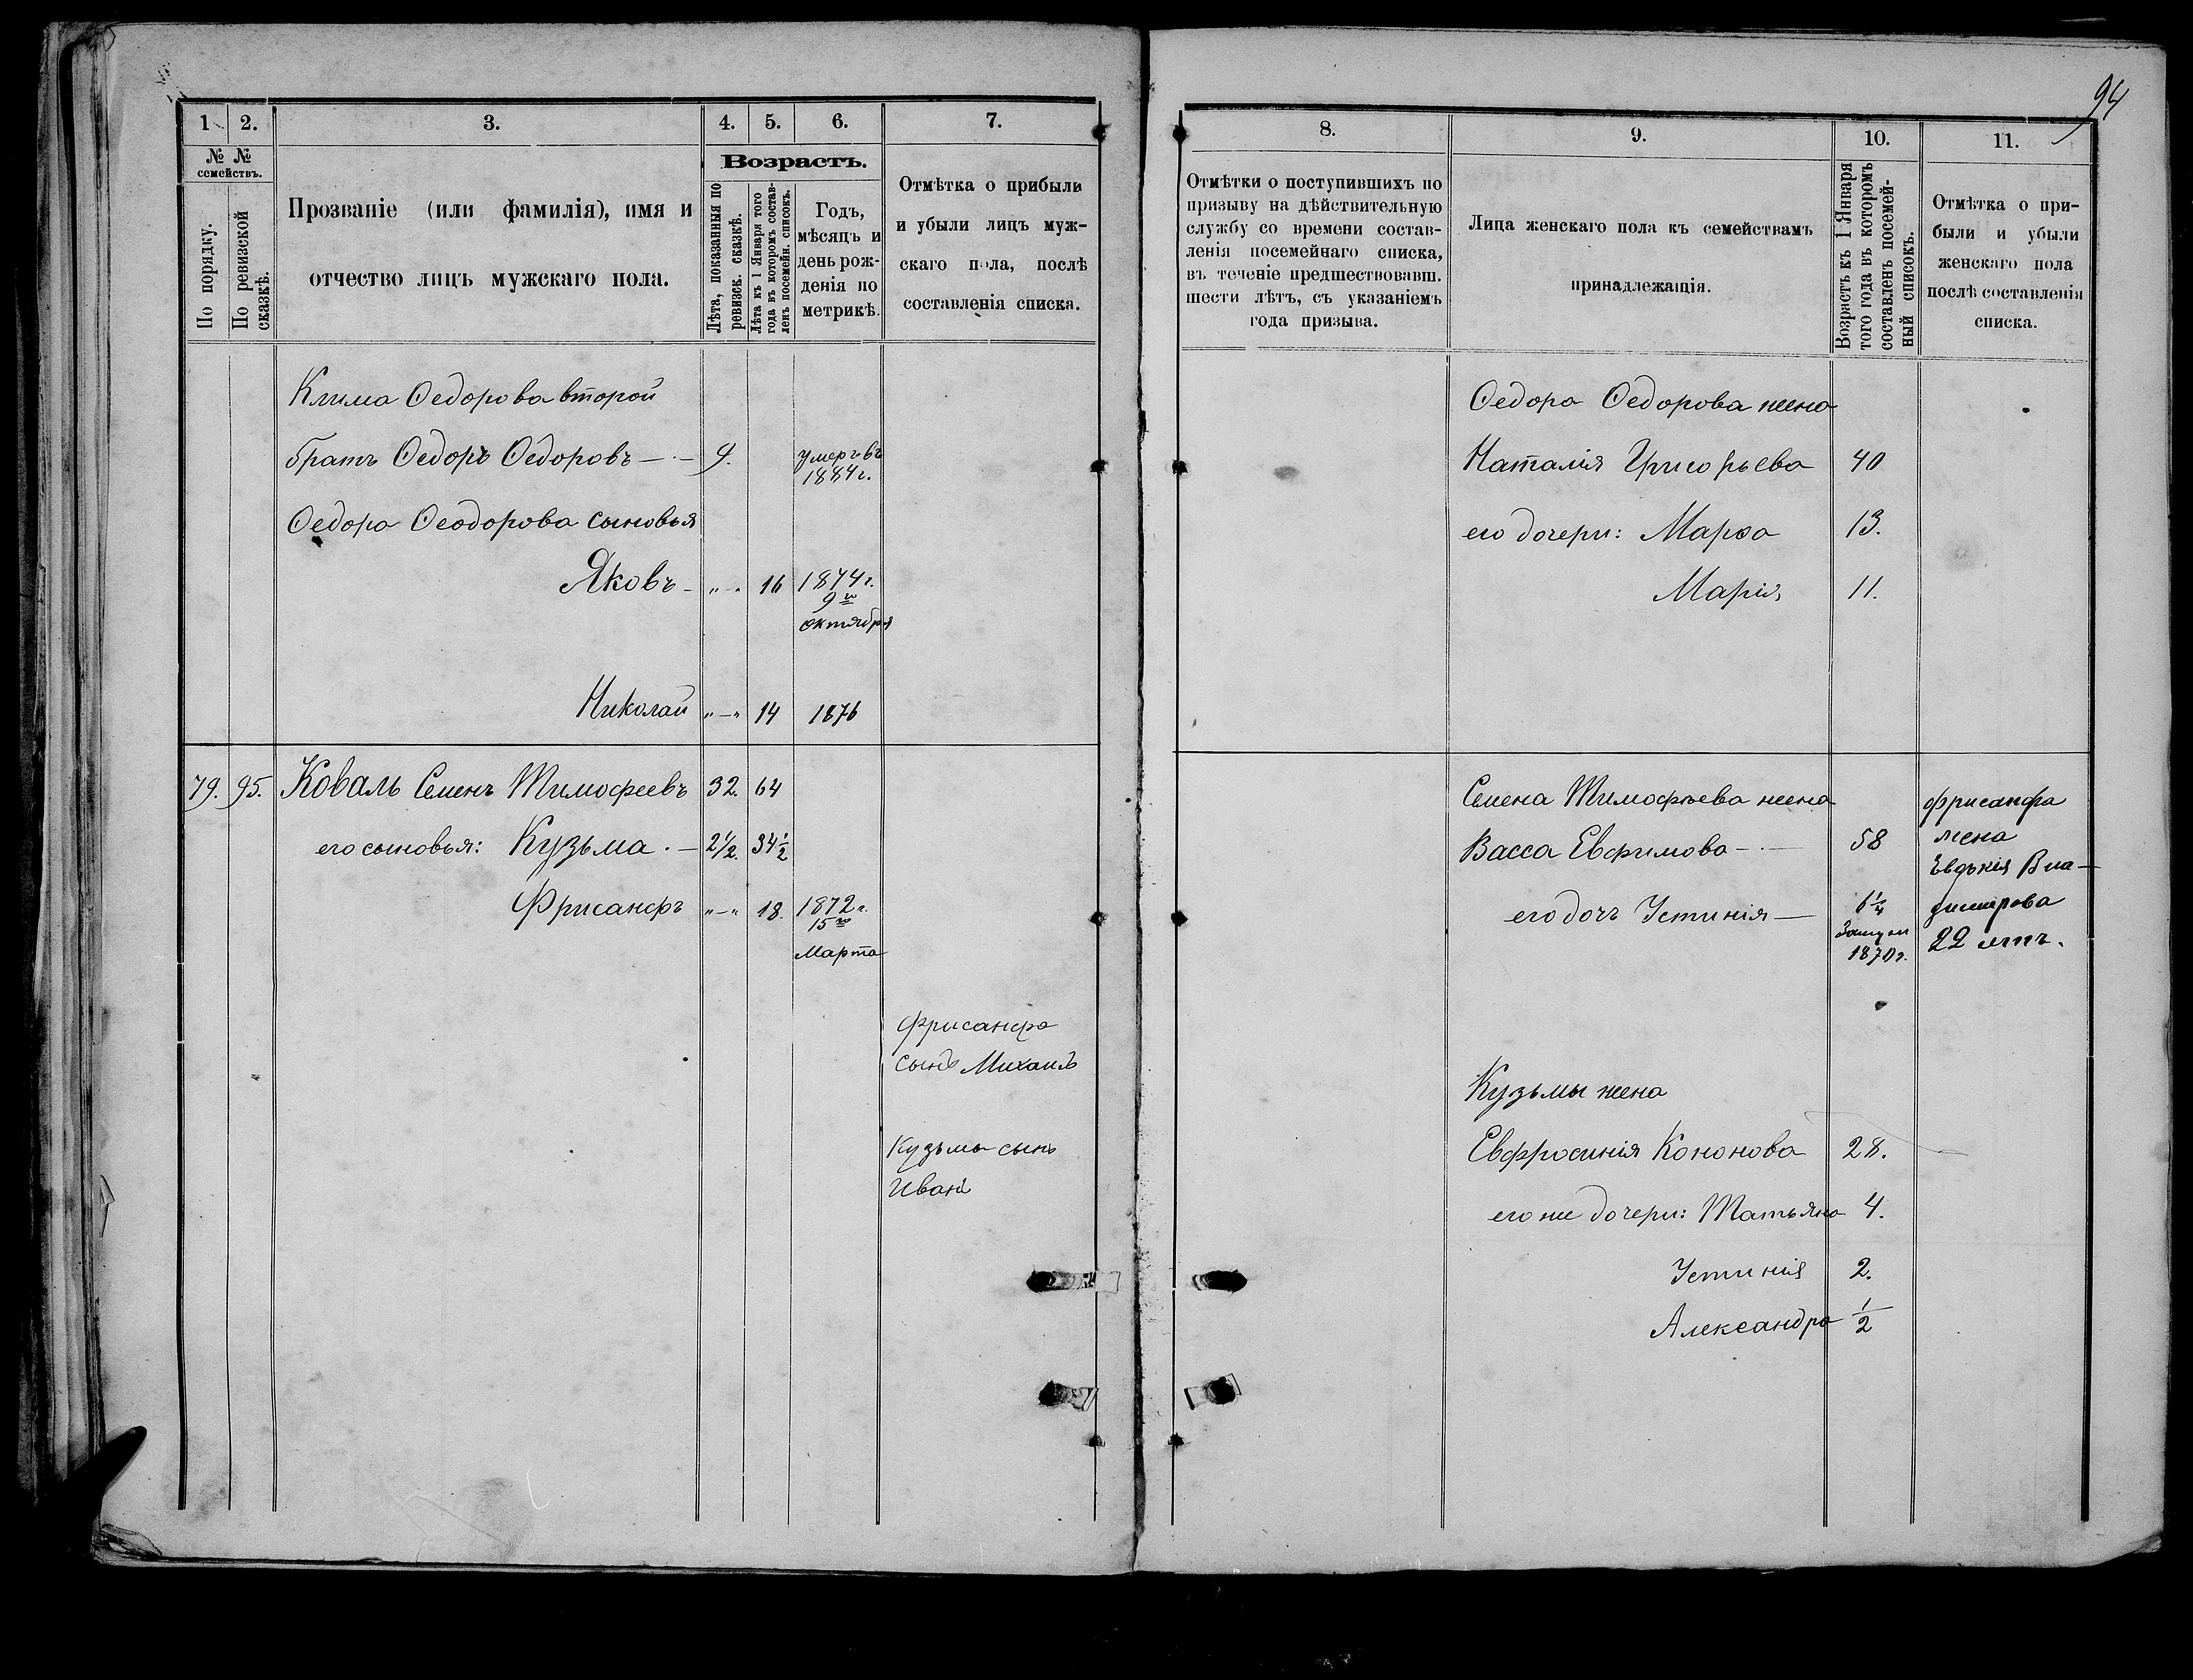 94
1. 2. 3. 4. 5. 6. 7.
№ № семействъ.
По порядку.
По ревизской сказкѣ.
Прозваніе (или фамилія), имя и
отчество лицъ мужскаго пола.
Возрастъ.
Лѣта, показанныя по
ревизск. сказкѣ.
Лѣта къ 1 Января того
года въ которомъ состав-
ленъ посемейн. списокъ.
Годъ,
мѣсяцъ и
день рож-
денія по
метрикѣ.
Отмѣтка о прибыли
и убыли лицъ муж-
скаго пола, послѣ
составленія списка.
Клима Ѳедорова второй
братъ Ѳедоръ Ѳедоровъ — 9. умеръ въ
1884 г.
Ѳедора Ѳеодорова сыновья
Яковъ - „ - „ 16 1874 г.
9го
октября
Николай „ — „ 14 1876
79. 95. Коваль Семенъ Тимофеевъ 32. 64
его сыновья: Кузьма. — 2 1/2. 34 1/2
Фрисанфъ „ — „ 18. 1872 г.
15го
Марта
Фрисанфа
сынъ Михаилъ
Кузьмы сынъ
Иванъ
8. 9. 10. 11.
Отмѣтки о поступившихъ по
призыву на дѣйствительную
службу со времени состав-
ленія посемейнаго списка,
въ теченіе предшествовавш.
шести лѣтъ, съ указаніемъ
года призыва.
Лица женскаго пола къ семействамъ
принадлежащія.
Возрастъ къ 1 Января
того года въ которомъ
составленъ посемей-
ный списокъ.
Отмѣтка о при-
были и убыли
женскаго пола
послѣ составленія
списка.
Ѳедора Ѳедорова жена
Наталія Григорьева 40
его дочери: Марѳа 13.
Марія 11.
Семена Тимофѣева жена
Васса Евфимова — 58
его дочь Устинія — 6 1/4
Замуж
1870 г.
Фрисанфа
жена
Евдокія Вла-
димірова
22 лѣтъ.
Кузьмы жена
Евфросинія Кононова 28.
его же дочери: Татьяна 4.
Устинія 2.
Александра 1/2